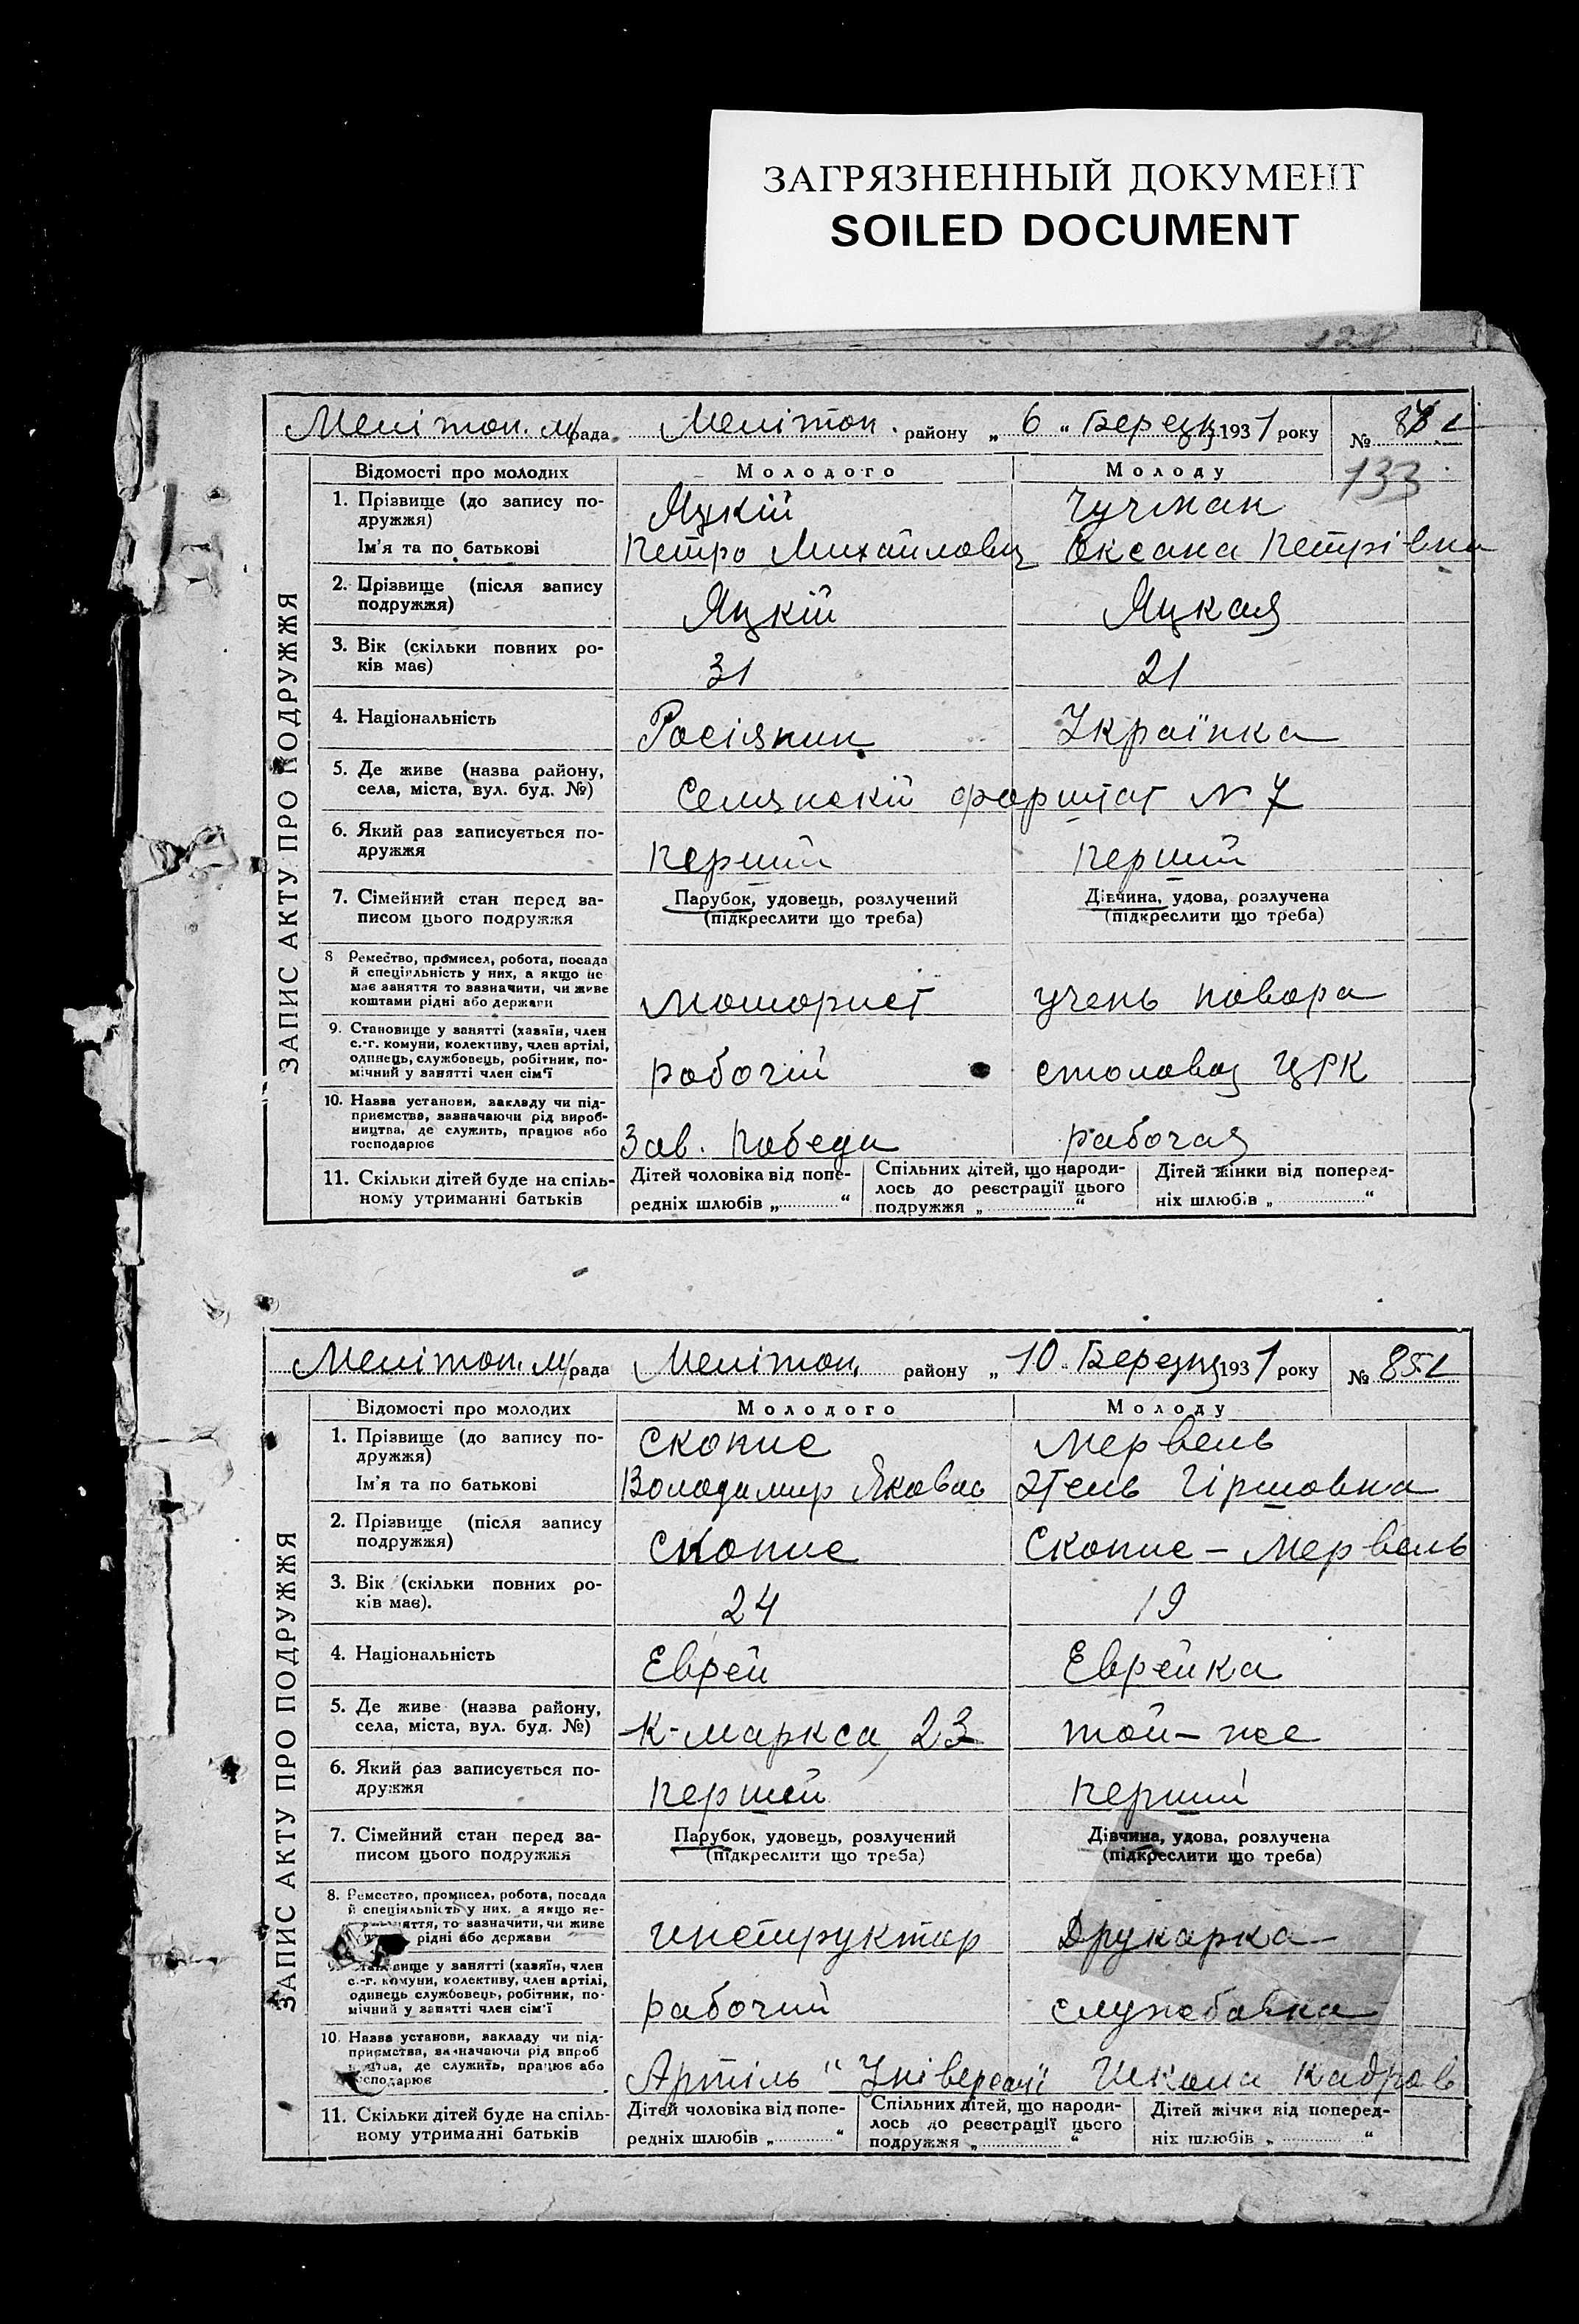 ЗАГРЯЗНЕННЫЙ ДОКУМЕНТ
SOILED DOCUMENT
133
ЗАПИС АКТУ ПРО ПОДРУЖЖЯ
Мелітоп. м/рада Мелітоп. району „ 6 " Березня 1931 року №
Відомості про молодих Молодого Молоду
1. Прізвище (до запису по-
дружжя) Яцкій Чучман
Ім'я та по батькові Петро Михайлович Оксана Петрівна
2. Прізвище (після запису
подружжя) Яцкій Яцкая
3. Вік (скільки повних ро-
ків має) 31 21
4. Національність Росіянин Українка
5. Де живе (назва району,
села, міста, вул. буд. №) Семянскій форштат N 7
6. Який раз записується по-
дружжя Перший Перший
7. Сімейний стан перед за-
писом цього подружжя
Парубок, удовець, розлучений
(підкреслити що треба)
Дівчина, удова, розлучена
(підкреслити що треба)
8 Ремество, промисел, робота, посада
й спеціяльність у них, а якщо не
має заняття то зазначити, чи живе
коштами рідні або держави
моторист учень повора
9. Становище у занятті (хазяїн, член
с.-г. комуни, колективу, член артілі,
одинець, службовець, робітник, по-
мічний у занятті член сім'ї
робочій столовая ЦРК
10. Назва установи, закладу чи під-
приємства, зазначаючи рід вироб-
ництва, де служить, працює або
господарює
Зав. Победа рабочая
11. Скільки дітей буде на спіль-
ному утриманні батьків
Дітей чоловіка від попе-
редніх шлюбів „ “
Спільних дітей, що народи-
лось до реєстрації цього
подружжя „ “
Дітей жінки від поперед-
ніх шлюбів „ “
ЗАПИС АКТУ ПРО ПОДРУЖЖЯ
Мелітоп. м/рада Мелітоп. району „ 10 " Березня 1931 року № 85
Відомості про молодих Молодого Молоду
1. Прізвище (до запису по-
дружжя) Скопис Мервель
Ім'я та по батькові Володимир Яковл Этель Гіршовна
2. Прізвище (після запису
подружжя) Скопис Скопис - Мервель
3. Вік (скільки повних ро-
ків має). 24 19
4. Національність Еврей Еврейка
5. Де живе (назва району,
села, міста, вул. буд. №) К-Маркса, 23 той-же
6. Який раз записується по-
дружжя Перший Перший
7. Сімейний стан перед за-
писом цього подружжя
Парубок, удовець, розлучений
(підкреслити що треба)
Дівчина, удова, розлучена
(підкреслити що треба)
8. Ремество, промисел, робота, посада
й спеціяльність у них, а якщо не-
заняття, то зазначити, чи живе
рідні або держави
инструктор Друкарка
вище у занятті (хазяїн, член
с.-г. комуни, колективу, член артілі,
одинець службовець, робітник, по-
мічний у занятті член сім'ї
рабочий служебовка
10. Назва установи, закладу чи під-
приємства, зазначаючи рід вироб
де служить, працює або
господарює
Артіль "Універсаль" Школа Кадров
11. Скільки дітей буде на спіль-
ному утриманні батьків
Дітей чоловіка від попе-
редніх шлюбів „ “
Спільних дітей, що народи-
лось до реєстрації цього
подружжя „ “
Дітей жінки від поперед-
ніх шлюбів „ “